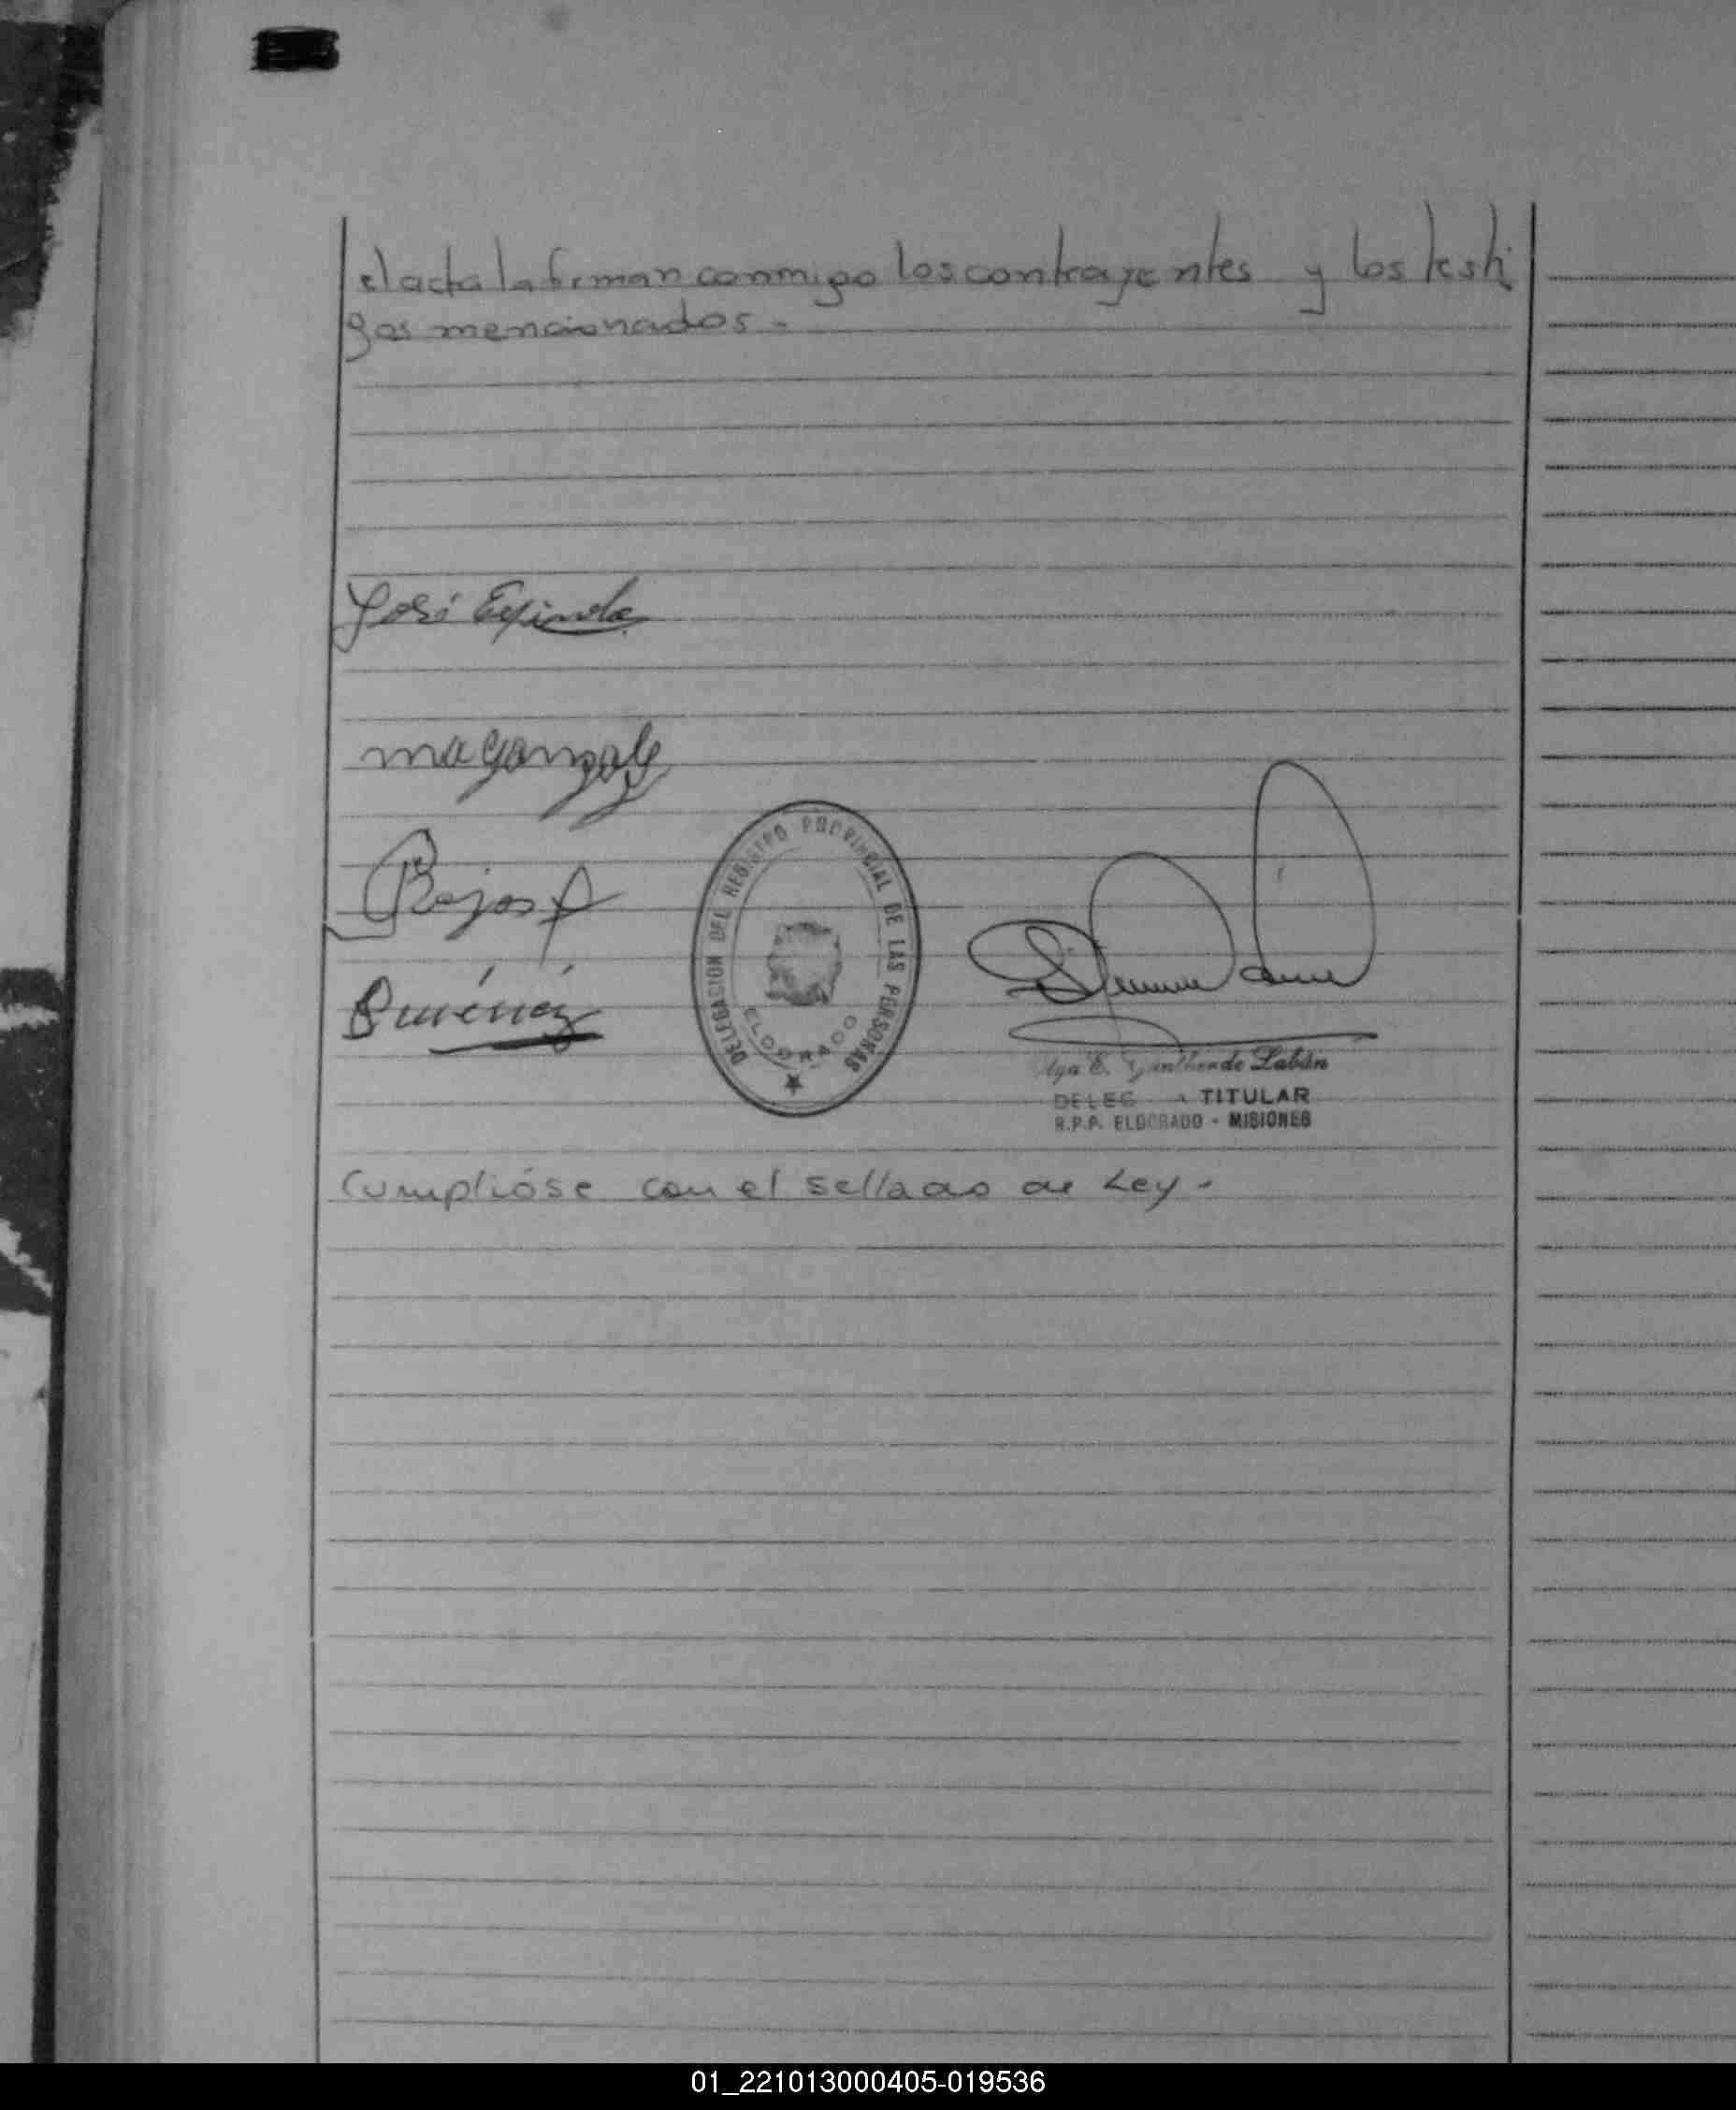 el acta la firman conmigo los contrayentes y los testi
gos mencionados.-
José Espinola
ma gonzalez
Rojas
Jiménez
DELEGACION DEL REGISTRO PROVINCIAL DE LAS PERSONAS
ELDORADO
de Labán
TITULAR
R.P.P. ELDORADO - MISIONES
Cumplióse con el sellado de Ley.-
01_221013000405-019536